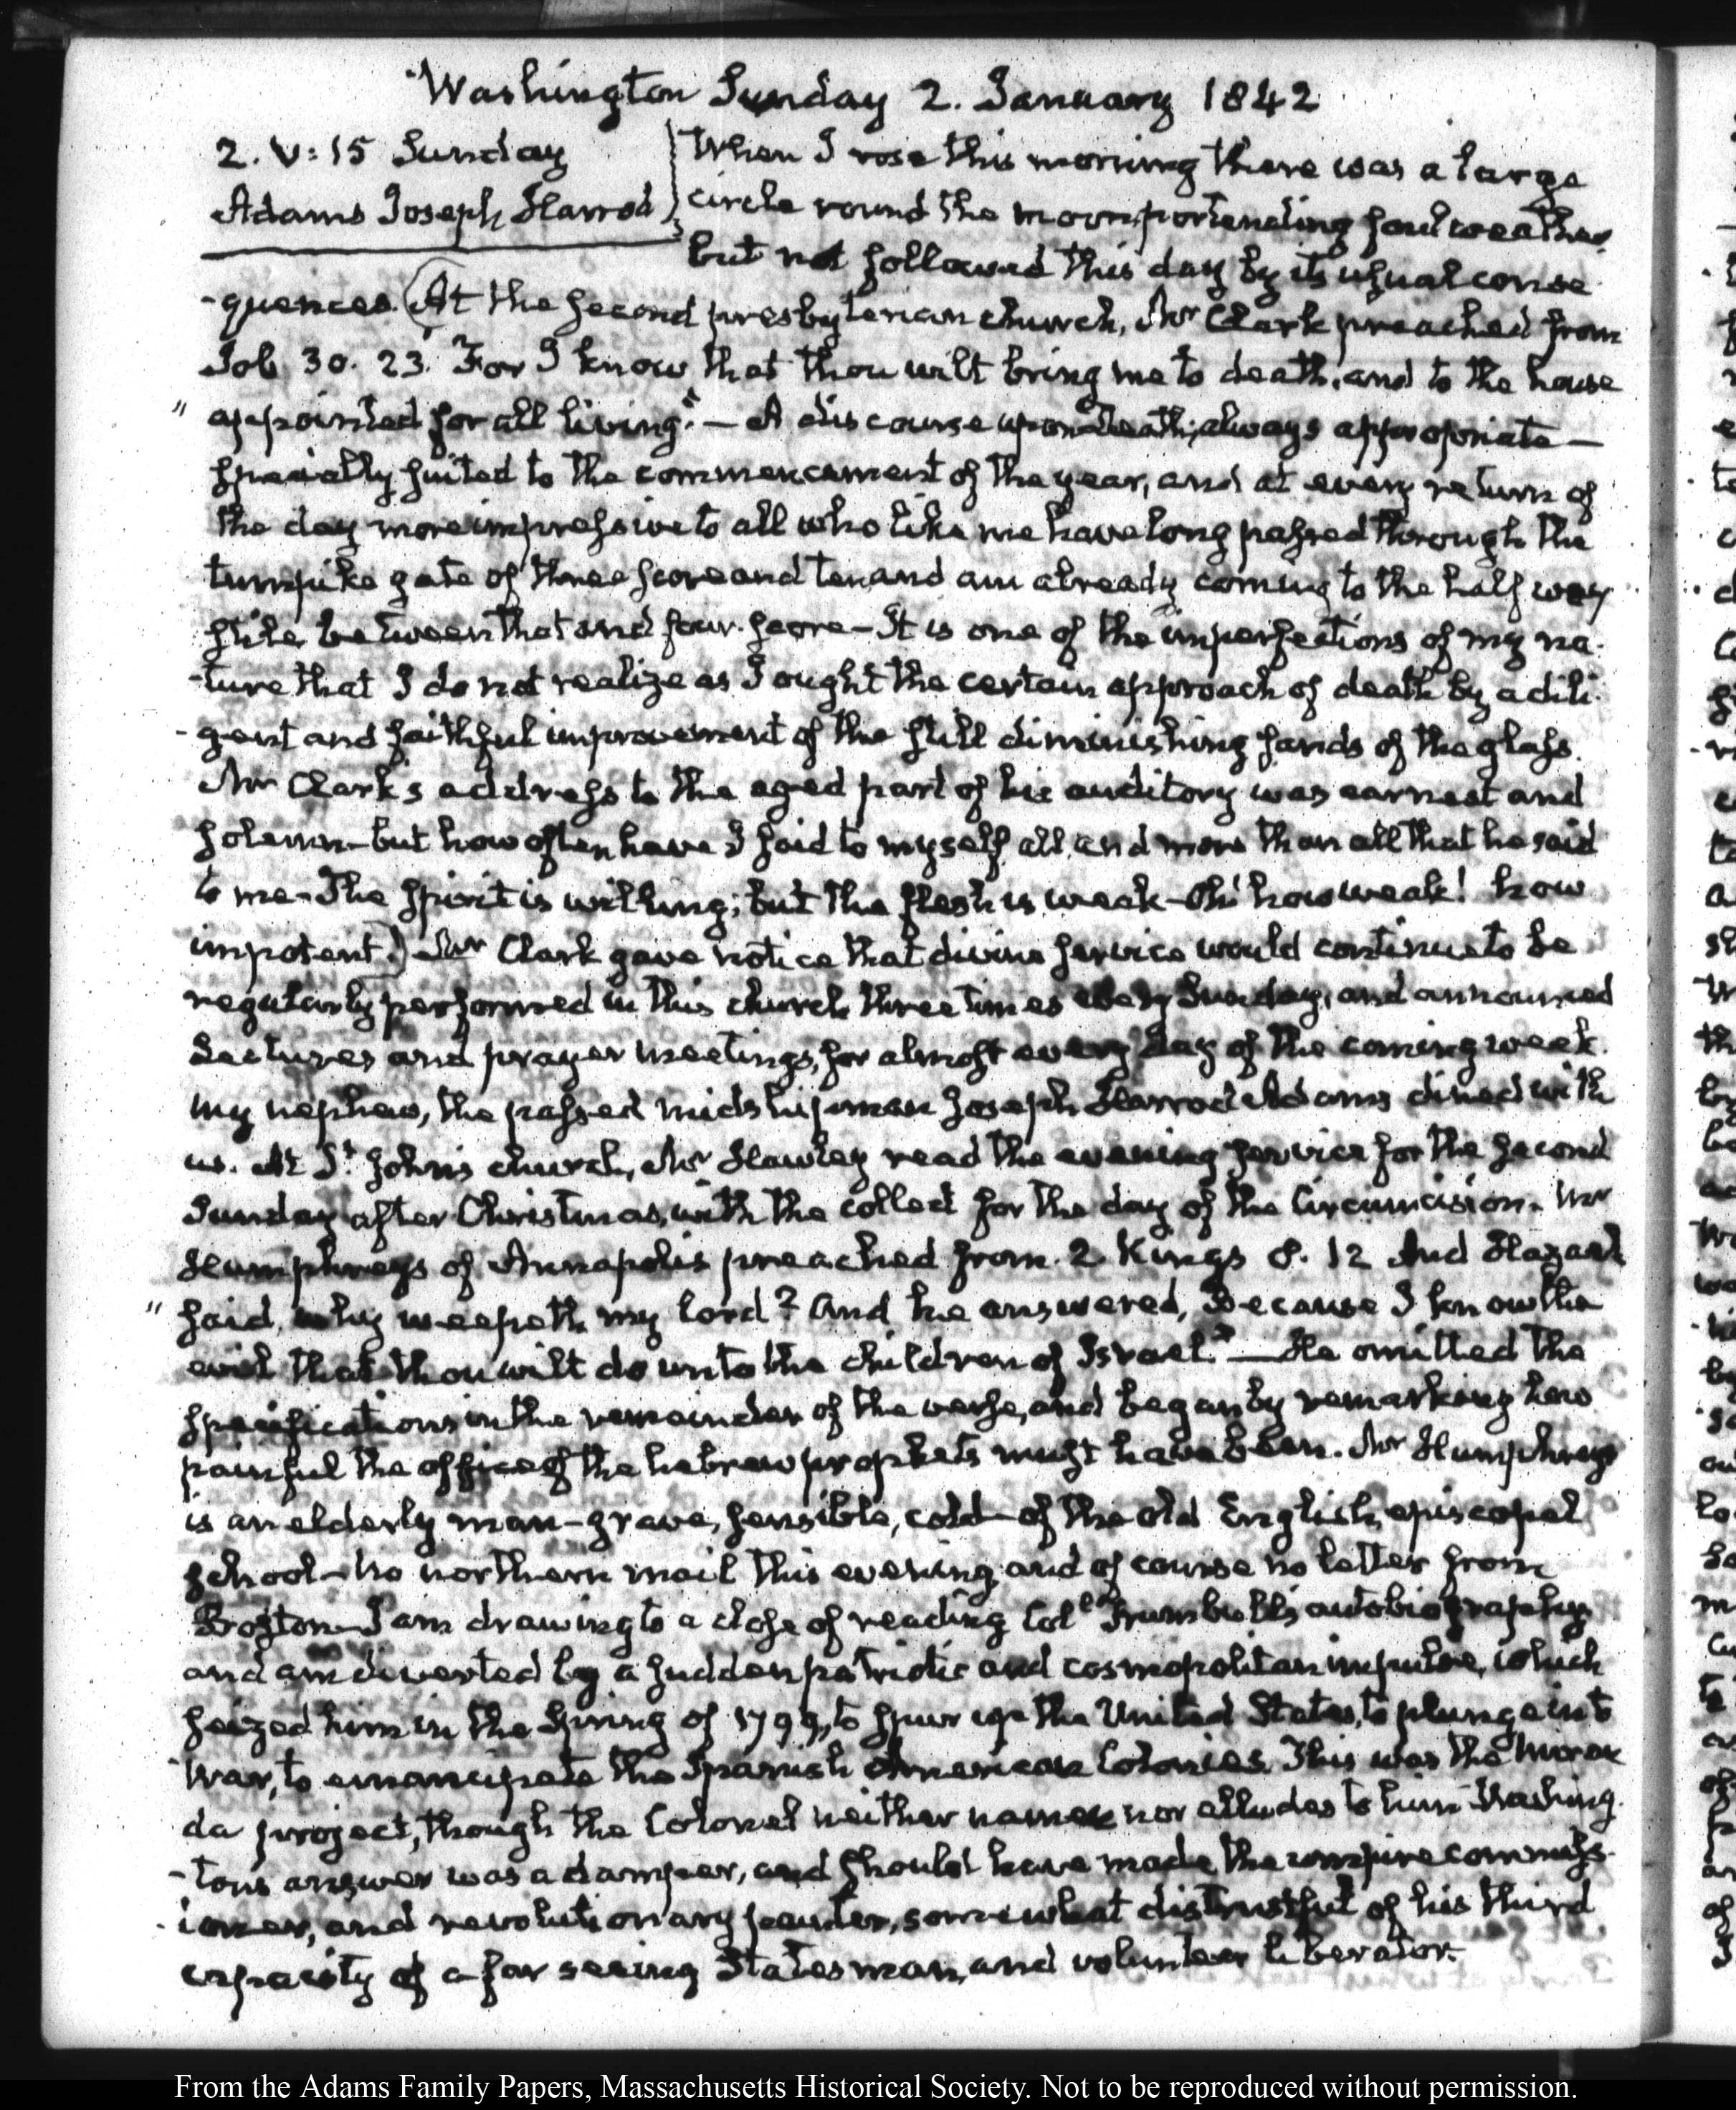 Washington Sunday 2. January 1842
2. V: 15 Sunday
Adams Joseph Harrod
When I rose this morning there was a large
circle round the moon, portending foul weather
but not followed this day by its usual conse
-quences. (At the second presbyterian church, Mr Clark preached from
Job 30. 23. "For I know that thou wilt bring me to death, and to the house
" appointed for all living." — A discourse upon death, always appropriate —
specially suited to the commencement of the year, and at every return of
the day more impressive to all who like me have long passed through the
turnpike gate of three score and ten, and am already coming to the half way
stile between that and four-score — It is one of the imperfections of my na-
-ture that I do not realize as I ought the certain approach of death by a dili-
-gent and faithful improvement of the still diminishing sands of the glass.
Mr Clark's address to the aged part of his auditory was earnest and
solemn — but how often have I said to myself, all and more than all that he said
to me — The spirit is willing; but the flesh is weak — Oh! how weak! how
impotent.) Mr Clark gave notice that divine service would continue to be
regularly performed in this church three times every Sunday, and announced
Lectures and prayer meetings, for almost every day of the coming week.
My nephew, the passed midshipman Joseph Harrod Adams dined with
us. At St. John's church, Mr Hawley read the evening service for the second
Sunday after Christmas, with the collect for the day of the Circumcision. Mr
Humphreys of Annapolis preached from 2 Kings 8. 12 And Hazael
" said, why weepeth my lord? And he answered, Because I know the
evil that thou wilt do unto the children of Israel." — He omitted the
specifications in the remainder of the verse, and began by remarking how
painful the office of the hebrew prophets must have been. Mr Humphreys
is an elderly man — grave, sensible, cold — of the old English episcopal
school — No northern mail this evening and of course no letter from
Boston — I am drawing to a close of reading Colel Trumbull's autobiography
and am diverted by a sudden patriotic and cosmopolitan impulse, which
seized him in the Spring of 1799, to spur up the United States, to plunge into
War, to emancipate the Spanish American Colonies. This was the Miran
da project, though the Colonel neither names nor alludes to him. Washing-
-ton's answer was a damper, and should have made the umpire commiss-
-ioner, and revolutionary painter, somewhat distrustful of his third
capacity of a far seeing Statesman, and volunteer liberator.
From the Adams Family Papers, Massachusetts Historical Society. Not to be reproduced without permission.